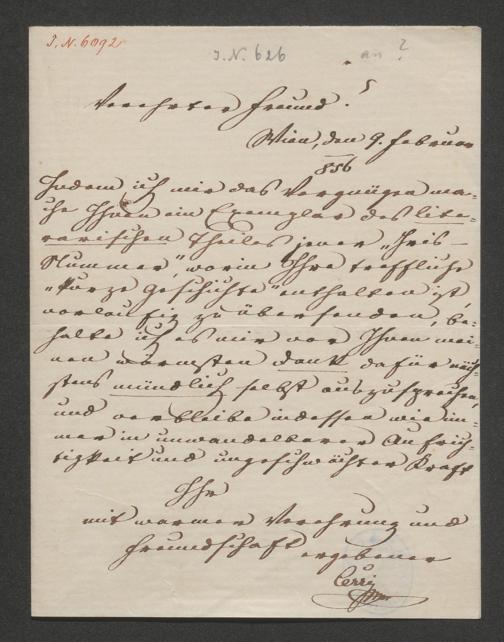 I.N. 6092
I.N. 626
an ?
Verehrter Freund!
Wien, den 9. Februar
856
Indem ich mir das Vergnügen ma-
che Ihnen ein Exemplar des lite-
rarischen Theiles jener „Iris-
Nummer", worin Ihre treffliche
„kurze Geschichte" enthalten ist,
vorläufig zu übersenden, be-
halte ich es mir vor Ihnen mei-
nen wärmsten Dank dafür näch-
stens mündlich selbst auszusprechen,
und verbleibe indessen wie im-
mer in unwandelbarer Aufrich-
tigkeit und ungeschwächter Kraft
Ihr
mit warmer Verehrung und
Freundschaft ergebener
Cerri